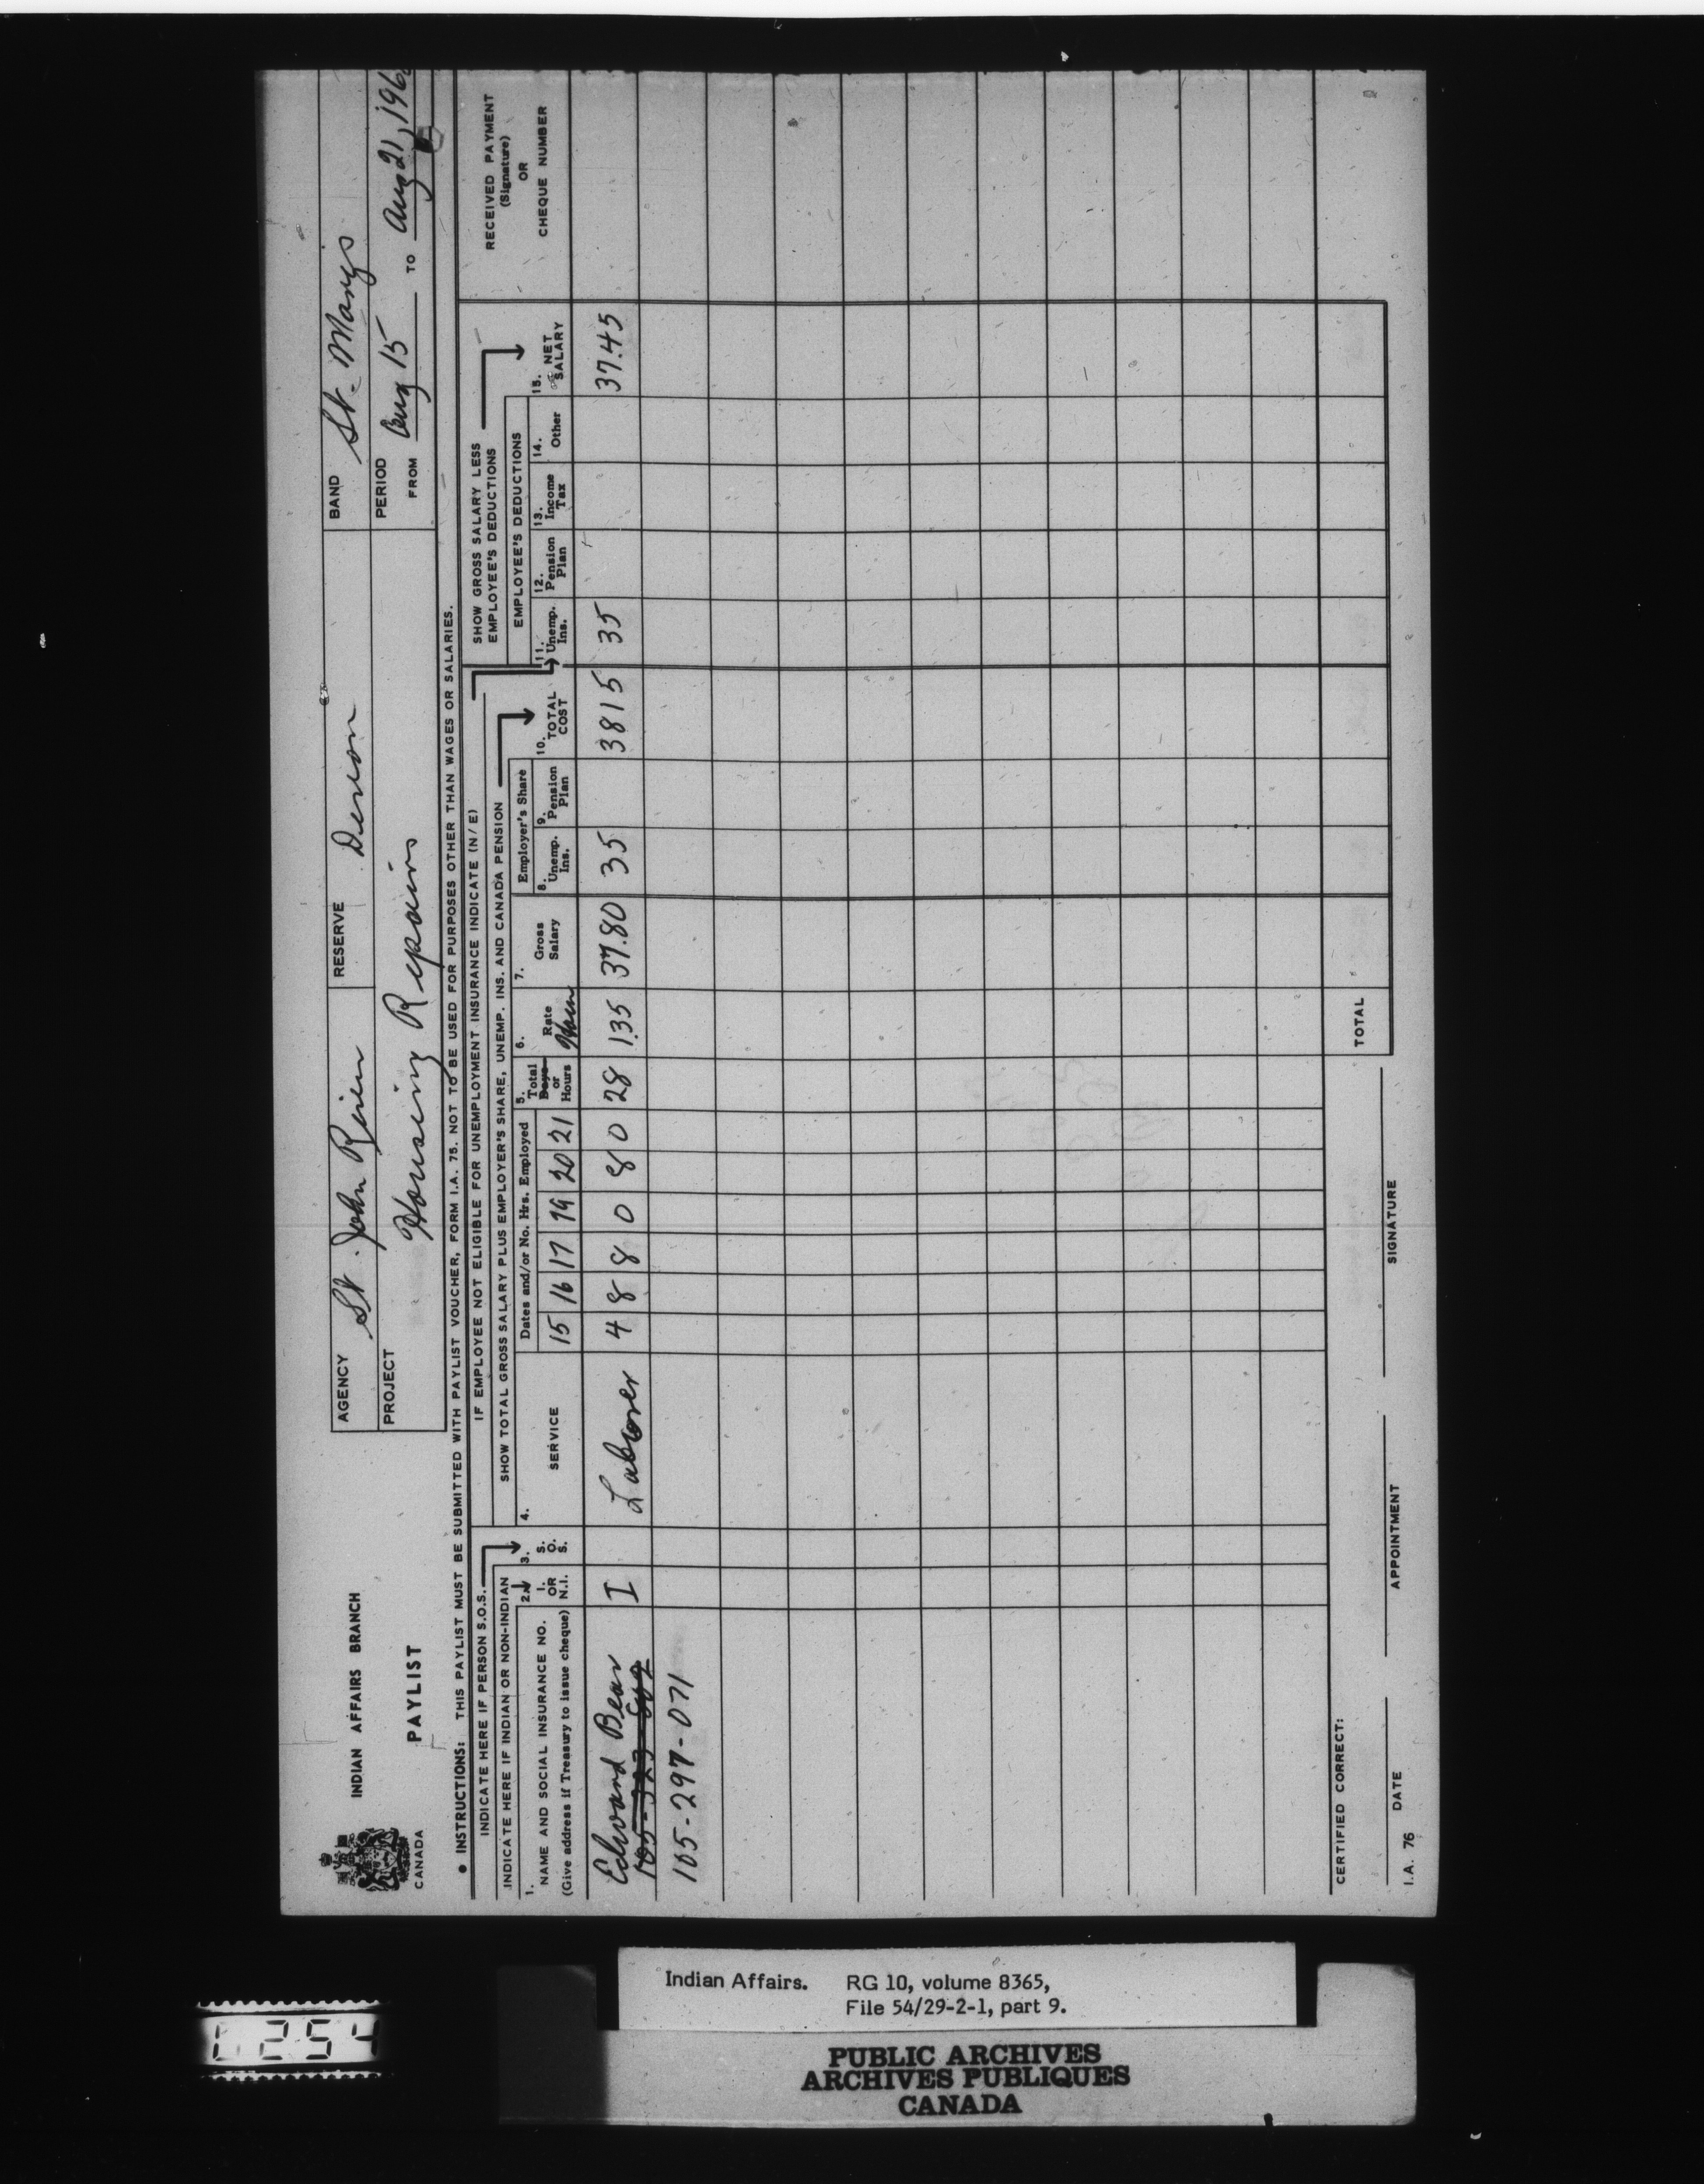 CANADA
INDIAN AFFAIRS BRANCH
PAYLIST
AGENCY St. John River
RESERVE Devon
BAND St. Marys
PROJECT Housing Repairs
PERIOD
FROM Aug 15 TO Aug 21, 196
• INSTRUCTIONS: THIS PAYLIST MUST BE SUBMITTED WITH PAYLIST VOUCHER, FORM I.A. 75. NOT TO BE USED FOR PURPOSES OTHER THAN WAGES OR SALARIES.
INDICATE HERE IF PERSON S.O.S.
IF EMPLOYEE NOT ELIGIBLE FOR UNEMPLOYMENT INSURANCE INDICATE (N/E)
SHOW GROSS SALARY LESS EMPLOYEE'S DEDUCTIONS
INDICATE HERE IF INDIAN OR NON-INDIAN
SHOW TOTAL GROSS SALARY PLUS EMPLOYER'S SHARE, UNEMP. INS. AND CANADA PENSION
1. NAME AND SOCIAL INSURANCE NO.
(Give address if Treasury to issue cheque)
2. I. OR N.I.
3. S. O. S.
4. SERVICE
Dates and/or No. Hrs. Employed
15 16 17 19 20 21
5. Total Days or Hours
6. Rate Hour
7. Gross Salary
Employer's Share
8. Unemp. Ins.
9. Pension Plan
10. TOTAL COST
EMPLOYEE'S DEDUCTIONS
11. Unemp. Ins.
12. Pension Plan
13. Income Tax
14. Other
15. NET SALARY
RECEIVED PAYMENT
(Signature)
OR
CHEQUE NUMBER
Edward Bear I Labrorer 4 8 8 0 8 0 28 1.35 37.80 35 38 15 35 37.45
105-297-071
TOTAL
CERTIFIED CORRECT:
DATE APPOINTMENT SIGNATURE
I.A. 76
Indian Affairs. RG 10, volume 8365,
File 54/29-2-1, part 9.
PUBLIC ARCHIVES
ARCHIVES PUBLIQUES
CANADA